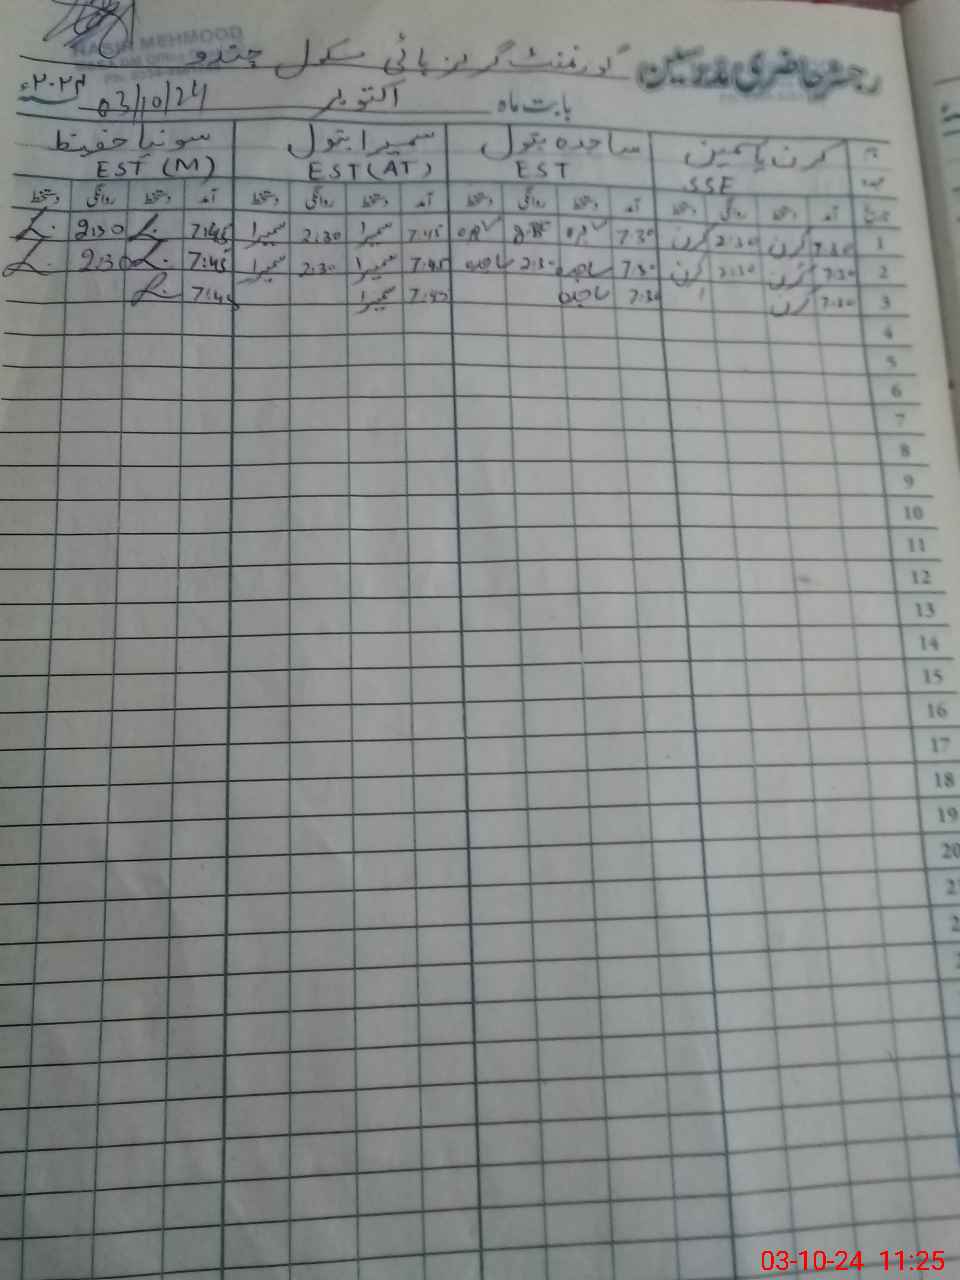 NASIR MEHMOOD
رجسٹر حاضری مدرسین گورنمنٹ گرلز ہائی سکول چندرو
بابت ماہ اکتوبر 03/10/24 ۲۰۲۴ء
نام کرن یاسمین ساجدہ بتول سمیرا بتول سونیا حفیظ
عہدہ SSE EST EST (AT) EST (M)
تاریخ آمد دستخط روانگی دستخط آمد دستخط روانگی دستخط آمد دستخط روانگی دستخط آمد دستخط روانگی دستخط
1 7:30 کرن 2:30 کرن 7:30 ساجدہ ساجدہ 7:45 سمیرا 2:30 سمیرا 7:45 2:30
2 7:30 کرن 2:30 کرن 7:30 ساجدہ 2:30 ساجدہ 7:45 سمیرا 2:30 سمیرا 7:45 2:30
3 7:30 کرن 7:30 ساجدہ سمیرا 7:45
4
5
6
7
8
9
10
11
12
13
14
15
16
17
18
19
20
03-10-24 11:25